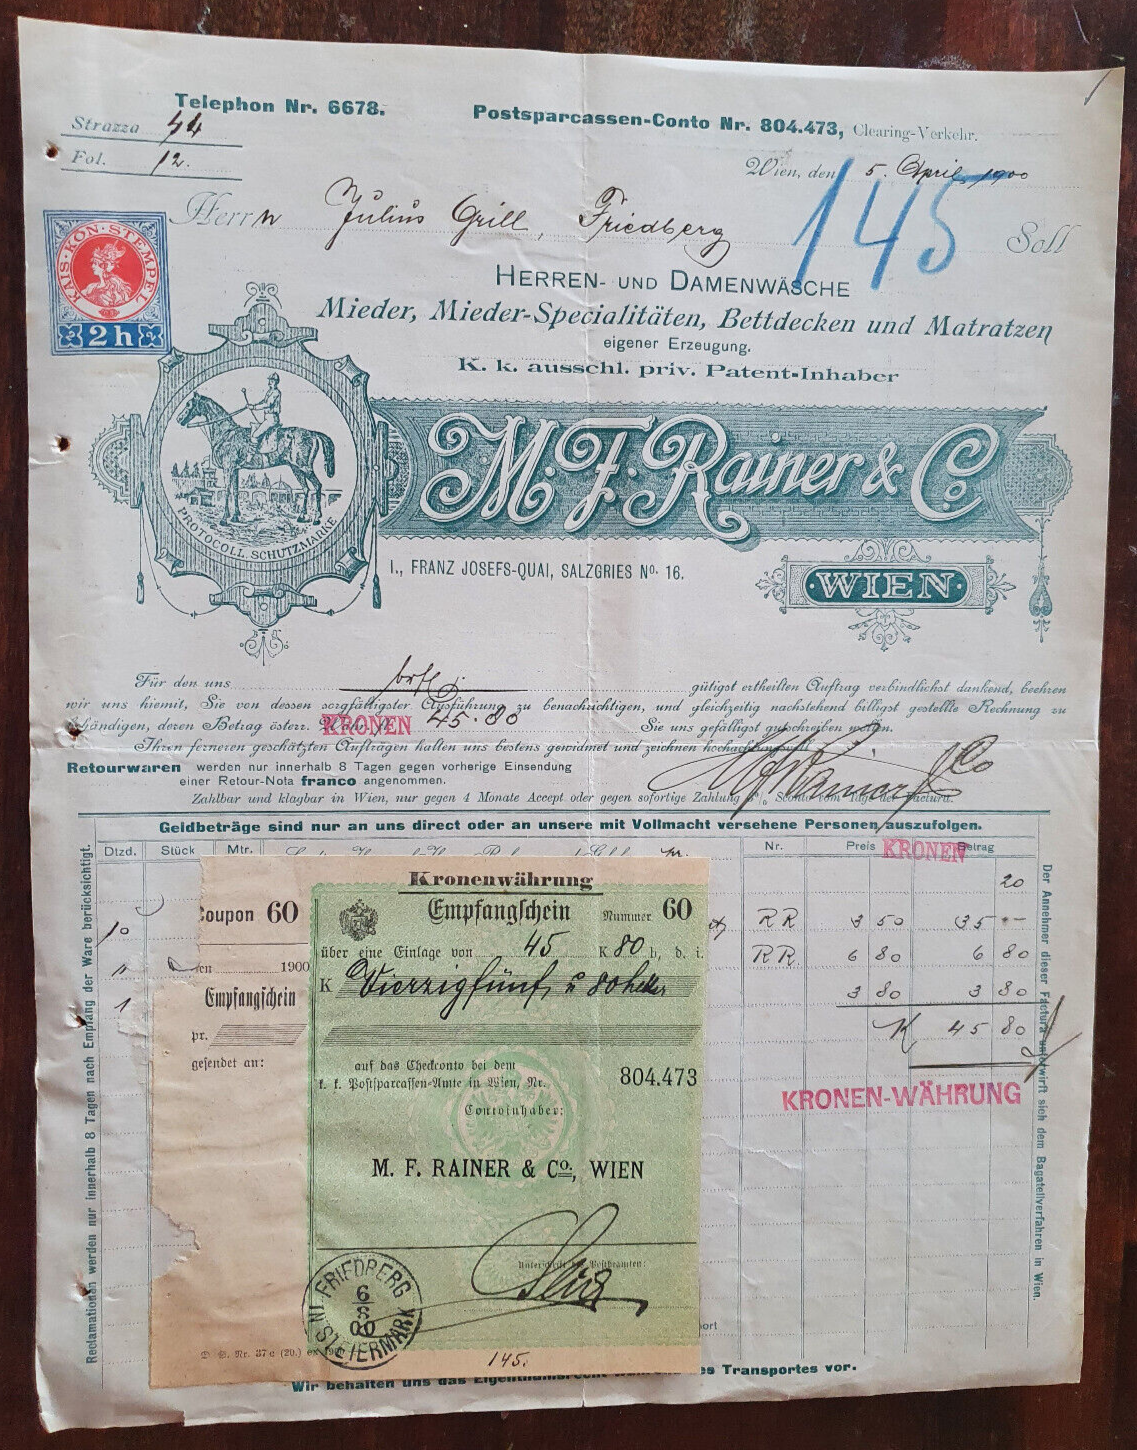 Telephon Nr. 6678.
Postsparcassen-Conto Nr. 804.473, Clearing-Verkehr.
Strazza 44
Fol. 12.
Wien, den 5. April 1900
145
Herrn Julius Grill, Friedberg
Soll
KAIS·KÖN·STEMPEL
2h
HERREN- UND DAMENWÄSCHE
Mieder, Mieder-Specialitäten, Bettdecken und Matratzen
eigener Erzeugung.
K. k. ausschl. priv. Patent-Inhaber
M. F. Rainer & Co
PROTOCOLL SCHUTZMARKE
I., FRANZ JOSEFS-QUAI, SALZGRIES No. 16.
WIEN
Für den uns gütigst ertheilten Auftrag verbindlichst dankend, beehren
wir uns hiemit, Sie von dessen sorgfältigster Ausführung zu benachrichtigen, und gleichzeitig nachstehend billigst gestellte Rechnung zu
behändigen, deren Betrag österr. KRONEN 45.80 Sie uns gefälligst gutschreiben wollen.
Ihren ferneren geschätzten Aufträgen halten uns bestens gewidmet und zeichnen hochachtungsvoll
MFRainer&Co
Retourwaren werden nur innerhalb 8 Tagen gegen vorherige Einsendung
einer Retour-Nota franco angenommen.
Zahlbar und klagbar in Wien, nur gegen 4 Monate Accept oder gegen sofortige Zahlung % Sconto vom Tage der Factura.
Geldbeträge sind nur an uns direct oder an unsere mit Vollmacht versehene Personen auszufolgen.
Dtzd. Stück Mtr. Nr. Preis KRONEN Betrag
20
10 RR 3 50 35 -
" RR 6 80 6 80
1 3 80 3 80
K 45 80
KRONEN-WÄHRUNG
Reclamationen werden nur innerhalb 8 Tagen nach Empfang der Ware berücksichtigt.
Der Annehmer dieser Factura unterwirft sich dem Bagatellverfahren in Wien.
Coupon 60
1900
Empfangschein
pr.
gesendet an:
Kronenwährung
Empfangschein Nummer 60
über eine Einlage von 45 K 80 h, d. i.
K Vierzigfünf u 80 heller
auf das Checkconto bei dem
k. k. Postsparcassen-Amte in Wien, Nr. 804.473
Contoinhaber:
M. F. RAINER & Co., WIEN
Unterschrift des Postbeamten:
FRIEDBERG
6
8
00
IN STEIERMARK
D. S. Nr. 37 c (20.) ex
145.
Wir behalten uns das Eigenthumsrecht
des Transportes vor.